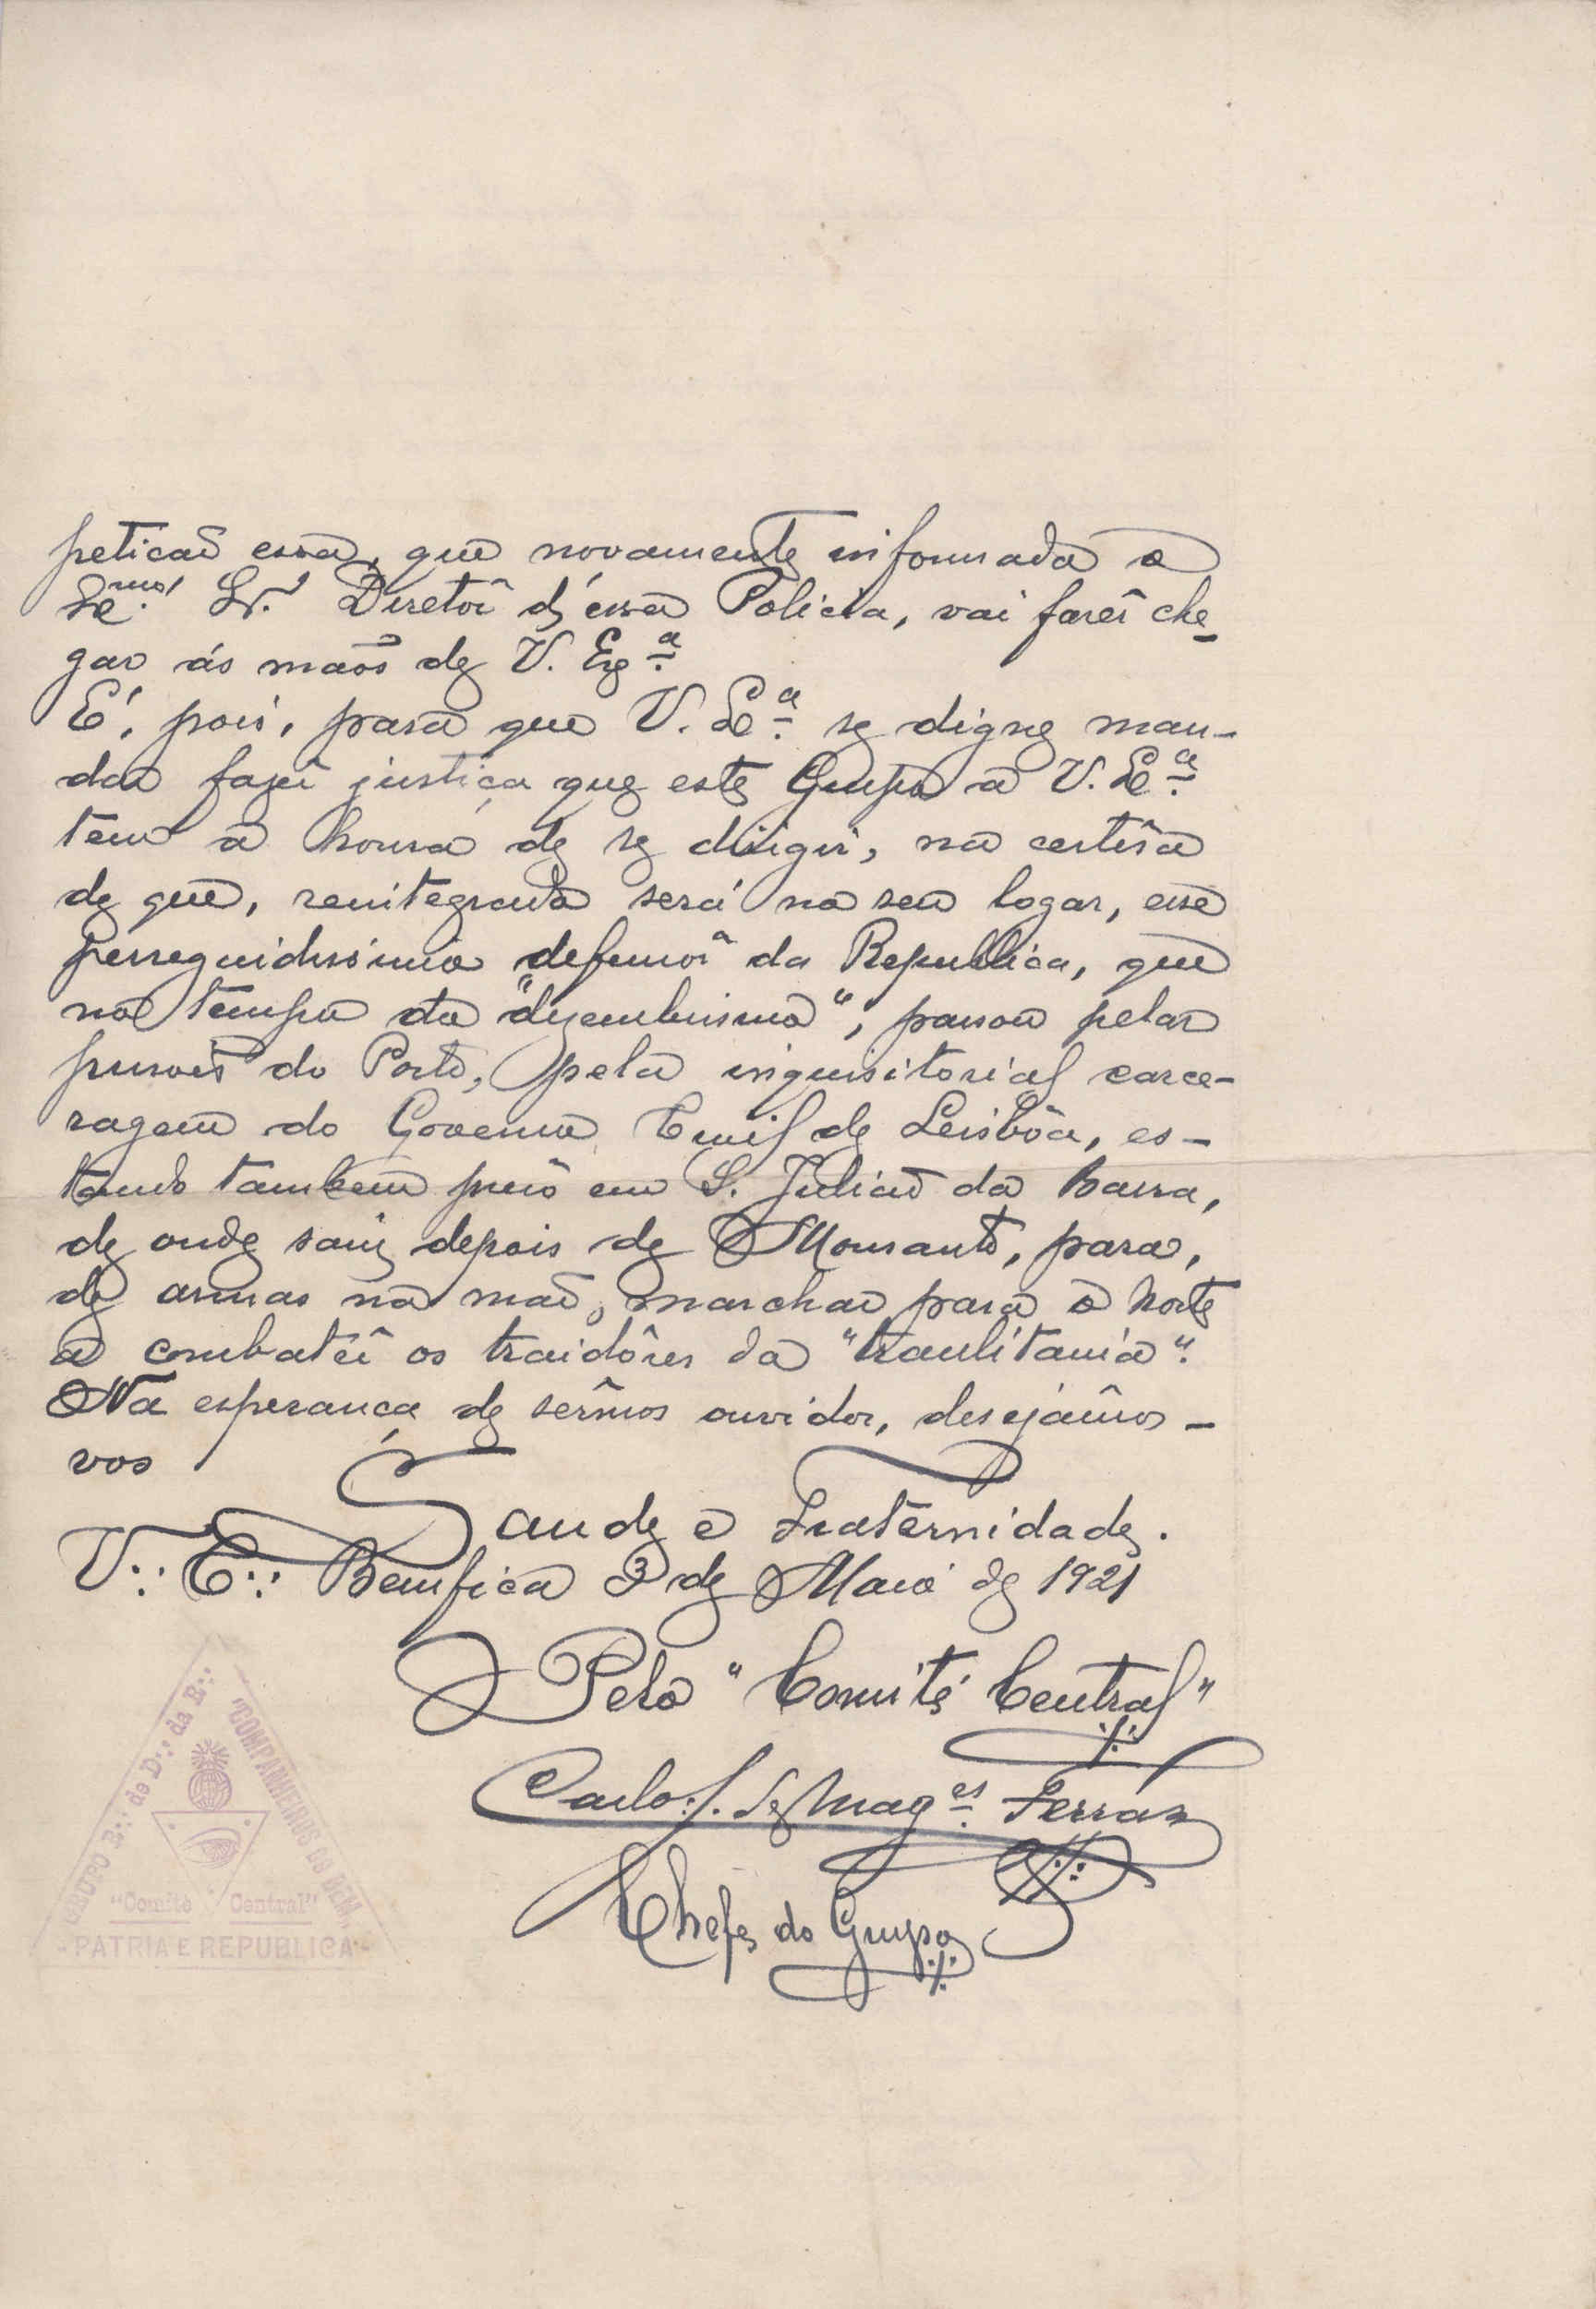 petição essa, que novamente informada o
Exmo. Sr. Diretôr d'essa Policia, vai fazêr che-
gar ás mãos de V. Exª
É, pois, para que V. Exª se digne man-
dar fazêr justiça que este Grupo a V. Exª
tem a honra de se dirigir, na certêsa
de que, reintegrado será no seu logar, esse
perseguidissimo defensôr da Republica, que
no tempo do "dezembrismo", passou pelas
prisões do Porto, pela inquisitorial carce-
ragem do Governo Civil de Lisbôa, es-
tando tambem prêso em S. Julião da Barra,
de onde saiu depois de Monsanto, para,
de armas na mão, marchar para o Norte
a combatêr os traidôres da "traulitania".
Na esperança de sêrmos ouvidos, desejâmos-
vos
Saude e Fraternidade.
V∴ E∴ Bemfica 3 de Maio de 1921
Pelo "Comité Central"
Carlos J. de Mag.es Ferráz
Chefe do Grupo
GRUPO E∴ de D∴ da R∴
"COMPANHEIROS DO BEM,
"Comité Central"
- PATRIA E REPUBLICA -